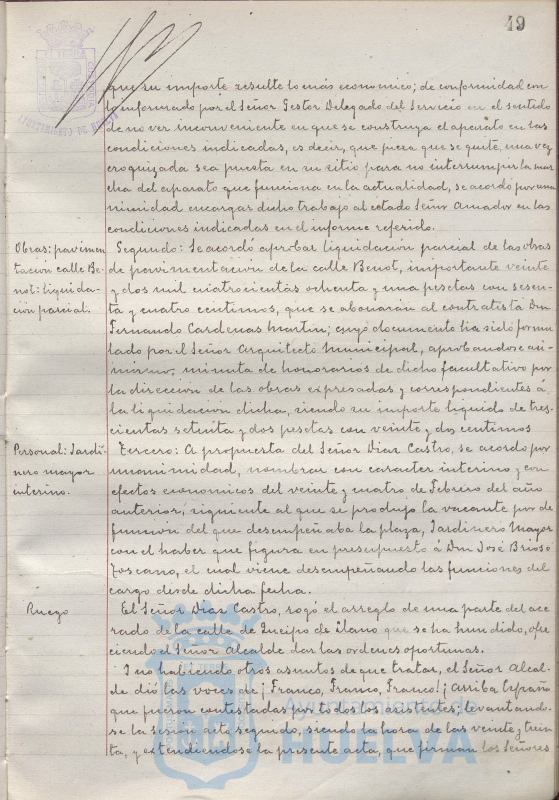 49
que su importe resulte lo más economico; de conformidad con
lo informado por el Señor Gestor Delegado del Servicio en el sentido
de no ver inconveniente en que se construya el aparato en las
condiciones indicadas, es decir, que pieza que se quite, una vez
croquizada sea puesta en su sitio para no interrumpir la mar
cha del aparato que funciona en la actualidad, se acordó por una
nimidad encargar dicho trabajo al citado Señor Amador en las
condiciones indicadas en el informe referido.
Obras: pavimen
tacion calle Be-
not: liquida-
cion parcial.
Segundo: Se acordó aprobar liquidación parcial de las obras
de pavimentacion de la calle Benot, importante veinte
y dos mil cuatrocientas ochenta y una pesetas con sesen-
ta y cuatro centimos, que se abonarán al contratista Don
Fernando Cardenas Martin; cuyo documento ha sido formu
lado por el Señor Arquitecto Municipal, aprobandose asi-
mismo, minuta de honorarios de dicho facultativo por
la dirección de las obras expresadas y correspondientes á
la liquidación dicha, siendo su importe liquido de tres-
cientas setenta y dos pesetas con veinte y dos centimos
Personal: Jardi-
nero mayor
interino.
Tercero: A propuesta del Señor Diaz Castro, se acordo por
unanimidad, nombrar con caracter interino y con
efectos economicos del veinte y cuatro de Febrero del año
anterior, siguiente al que se produjo la vacante por de
funcion del que desempeñaba la plaza, Jardinero Mayor
con el haber que figura en presupuesto á Don José Brioso
Toscano, el cual viene desempeñando las funciones del
cargo desde dicha fecha.
Ruego
El Señor Diaz Castro, rogó el arreglo de una parte del ace
rado de la calle de Queipo de Llano que se ha hundido, ofre
ciendo el Señor Alcalde dar las ordenes oportunas.
Y no habiendo otros asuntos de que tratar, el Señor Alcal-
de dió las voces de ¡Franco, Franco, Franco! ¡Arriba España
que fueron contestadas por todos los asistentes; levantando-
se la sesión acto seguido, siendo la hora de las veinte y trein
ta, y extendiendose la presente acta, que firman los Señores
Ayuntamiento de
HUELVA